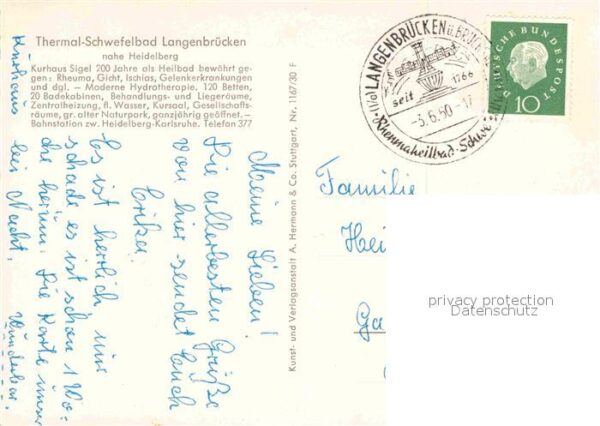 Thermal-Schwefelbad Langenbrücken
nahe Heidelberg
Kurhaus Sigel 200 Jahre als Heilbad bewährt ge-
gen: Rheuma, Gicht, Ischias, Gelenkerkrankungen
und dgl. — Moderne Hydrotherapie. 120 Betten,
20 Badekabinen, Behandlungs- und Liegeräume,
Zentralheizung, fl. Wasser, Kursaal, Gesellschafts-
räume, gr. alter Naturpark, ganzjährig geöffnet. —
Bahnstation zw. Heidelberg-Karlsruhe. Telefon 377
(17a) LANGENBRÜCKEN ü. BRUCHSAL
seit 1766
-3.6.60-17
Rheumaheilbad-Schwe
DEUTSCHE BUNDESPOST
10
Meine Lieben!
Die allerbesten Grüße
von hier sendet Euch
Erika.
Es ist herrlich nur
schade es ist schon 1 Wo-
che herum. Die Karte unser
Kurhaus bei Nacht.
Wunderbar.
Kunst- und Verlagsanstalt A. Hermann & Co. Stuttgart, Nr. 1167/30 F
Familie
Hei
Ga
privacy protection
Datenschutz